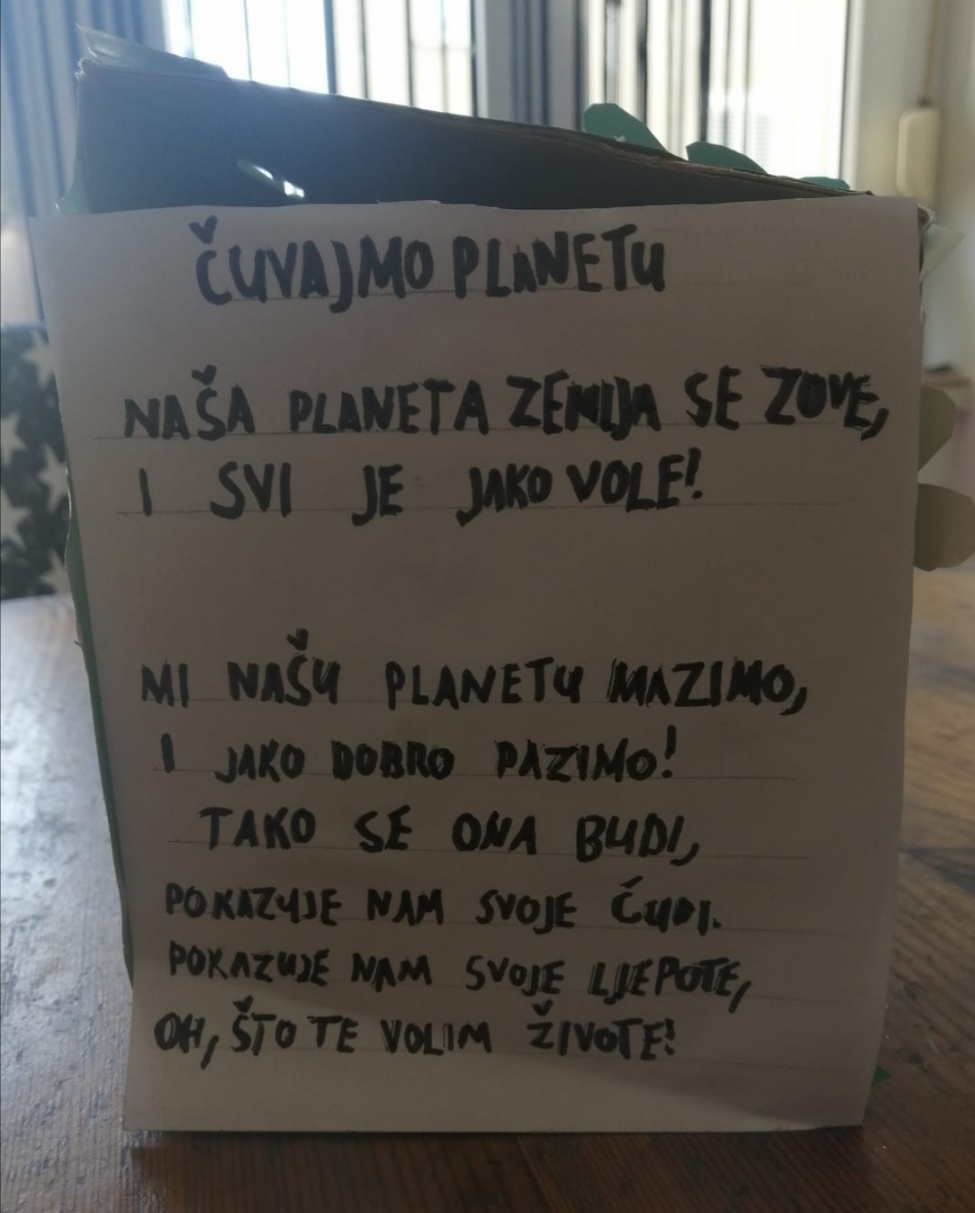 ČUVAJMO PLANETU
NAŠA PLANETA ZEMLJA SE ZOVE,
I SVI JE JAKO VOLE!
MI NAŠU PLANETU MAZIMO,
I JAKO DOBRO PAZIMO!
TAKO SE ONA BUDI,
POKAZUJE NAM SVOJE ĆUDI.
POKAZUJE NAM SVOJE LJEPOTE,
OH, ŠTO TE VOLIM ŽIVOTE!